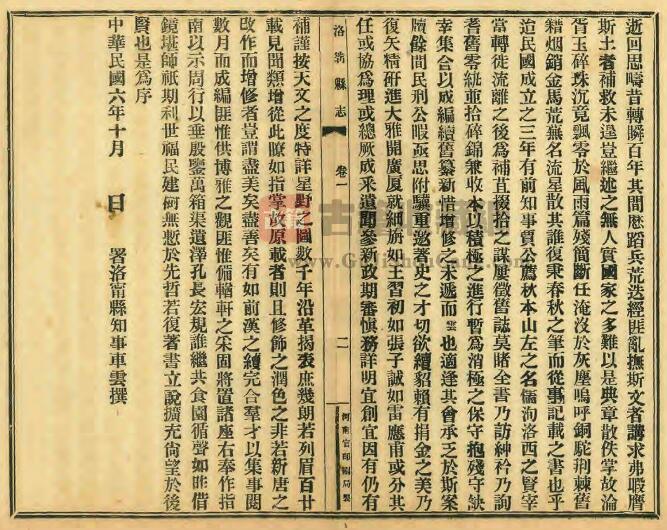 逝回思疇昔轉瞬百年其間歷蹈兵荒迭經匪亂撫斯文者講求弗暇膺
斯土者補救未遑豈繼述之無人實國家之多難以是典章散佚掌故淪
胥玉碎珠沉竟飄零於風雨篇殘簡斷任淹沒於灰塵嗚呼銅駝荆棘舊
籍烟銷金馬荒蕪名流星散其誰復秉春秋之筆而從事記載之書也乎
迨民國成立之三年有前知事賈公薦秋本山左之名儒洵洛西之賢宰
當轉徙流離之後為補苴掇拾之謀屢徵舊誌莫賭全書乃訪紳衿乃詢
耆舊零紙並拾碎錦兼收本以積極之進行暫為消極之保守抱殘守缺
幸集合以成編續舊纂新惜增修之未遞而雲也適逢其會承乏於斯案
牘餘間民刑公暇亟思附驥重邀著史之才切欲續貂賴有捐金之美乃
復矢精研進大雅開廣厦就細旃如王習初如張子誠如雷應甫或分其
任或協為理或總厥成釆遺聞參新政期審慎務詳明宜創宜因有仍有
補謹按天文之度特詳星野之圖數千年沿革揭表庶幾朗若列眉百廿
載見聞類增從此瞭如指掌故原載者則且修飾之潤色之非若新唐之
改作而增修者豈謂盡美矣盡善矣有如前漢之續完合羣才以集事閱
數月而成編匪惟供博雅之觀匪惟備輶軒之采固將置諸座右奉作指
南以示周行以垂殷鑒萬箱渠遺澤孔長宏規誰繼共食園循聲如昨借
鏡堪師祇期利世福民建樹無慙於先哲若復著書立說擴充尚望於後
賢也是為序
中華民國六年十月 日 署洛甯縣知事車雲撰
洛甯縣志 卷一 二 河南官印刷局製